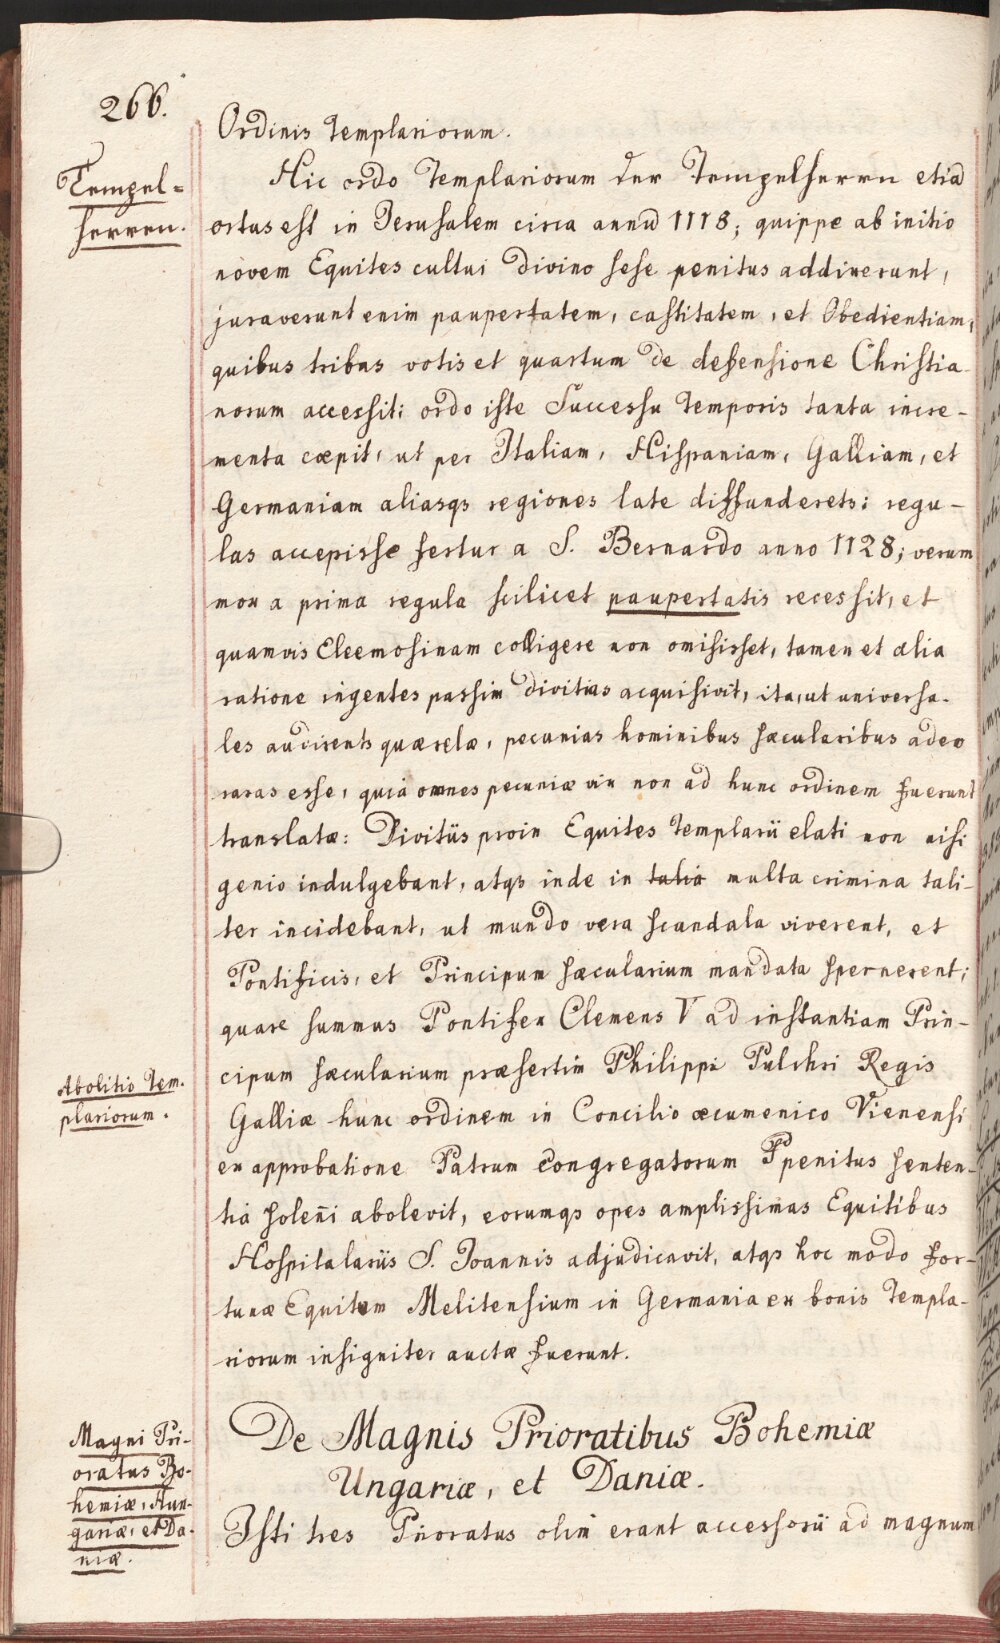 266.
Ordinis Templariorum.
Tempel=
herren.
Hic ordo Templariorum der Tempelherrn etiã
ortus est in Jerusalem circa annũ 1118; quippe ab initio
novem Equites cultui divino sese penitus addixerunt,
juraverunt enim paupertatem, castitatem, et Obedientiam,
quibus tribus votis et quartum de defensione Christia-
norum accessit: ordo iste Successu Temporis tanta incre-
menta cœpit, ut per Italiam, Hispaniam, Galliam, et
Germaniam aliasqs regiones late diffunderets: regu-
las accepisse fertur a S. Bernardo anno 1128; verum
mox a prima regula scilicet paupertatis recessit, et
quamvis Eleemosinam colligere non omisisset, tamen et alia
ratione ingentes passim divitias acquisivit, ita, ut universa-
les audirents quærelæ, pecunias hominibus sæcularibus adeo
raras esse, quia omnes pecuniæ vix non ad hunc ordinem fuerunt
translatæ: Divitiis proin Equites Templarii elati non nisi
genio indulgebant, atqs inde in talia multa crimina tali-
ter incidebant, ut mundo vera scandala viverent, et
Pontificis, et Principum sæcularium mandata spernerent;
quare summus Pontifex Clemens V ad instantiam Prin-
Abolitio Tem-
plariorum.
cipum sæcularium præsertim Philippi Pulchri Regis
Galliæ hunc ordinem in Concilio œcumenico Vienensi
ex approbatione Patrum congregatorum penitus senten-
tia solen̄i abolevit, eorumqs opes amplissimas Equitibus
Hospitalariis S. Joannis adjudicavit, atqs hoc modo for-
tunæ Equitum Melitensium in Germania ex bonis Templa-
riorum insigniter auctæ fuerunt.
Magni Pri-
oratus Bo-
hemiæ, Hun-
gariæ, et Da-
niæ.
De Magnis Prioratibus Bohemiæ
Ungariæ, et Daniæ.
Isti tres Prioratus olim erant accessorii ad magnum